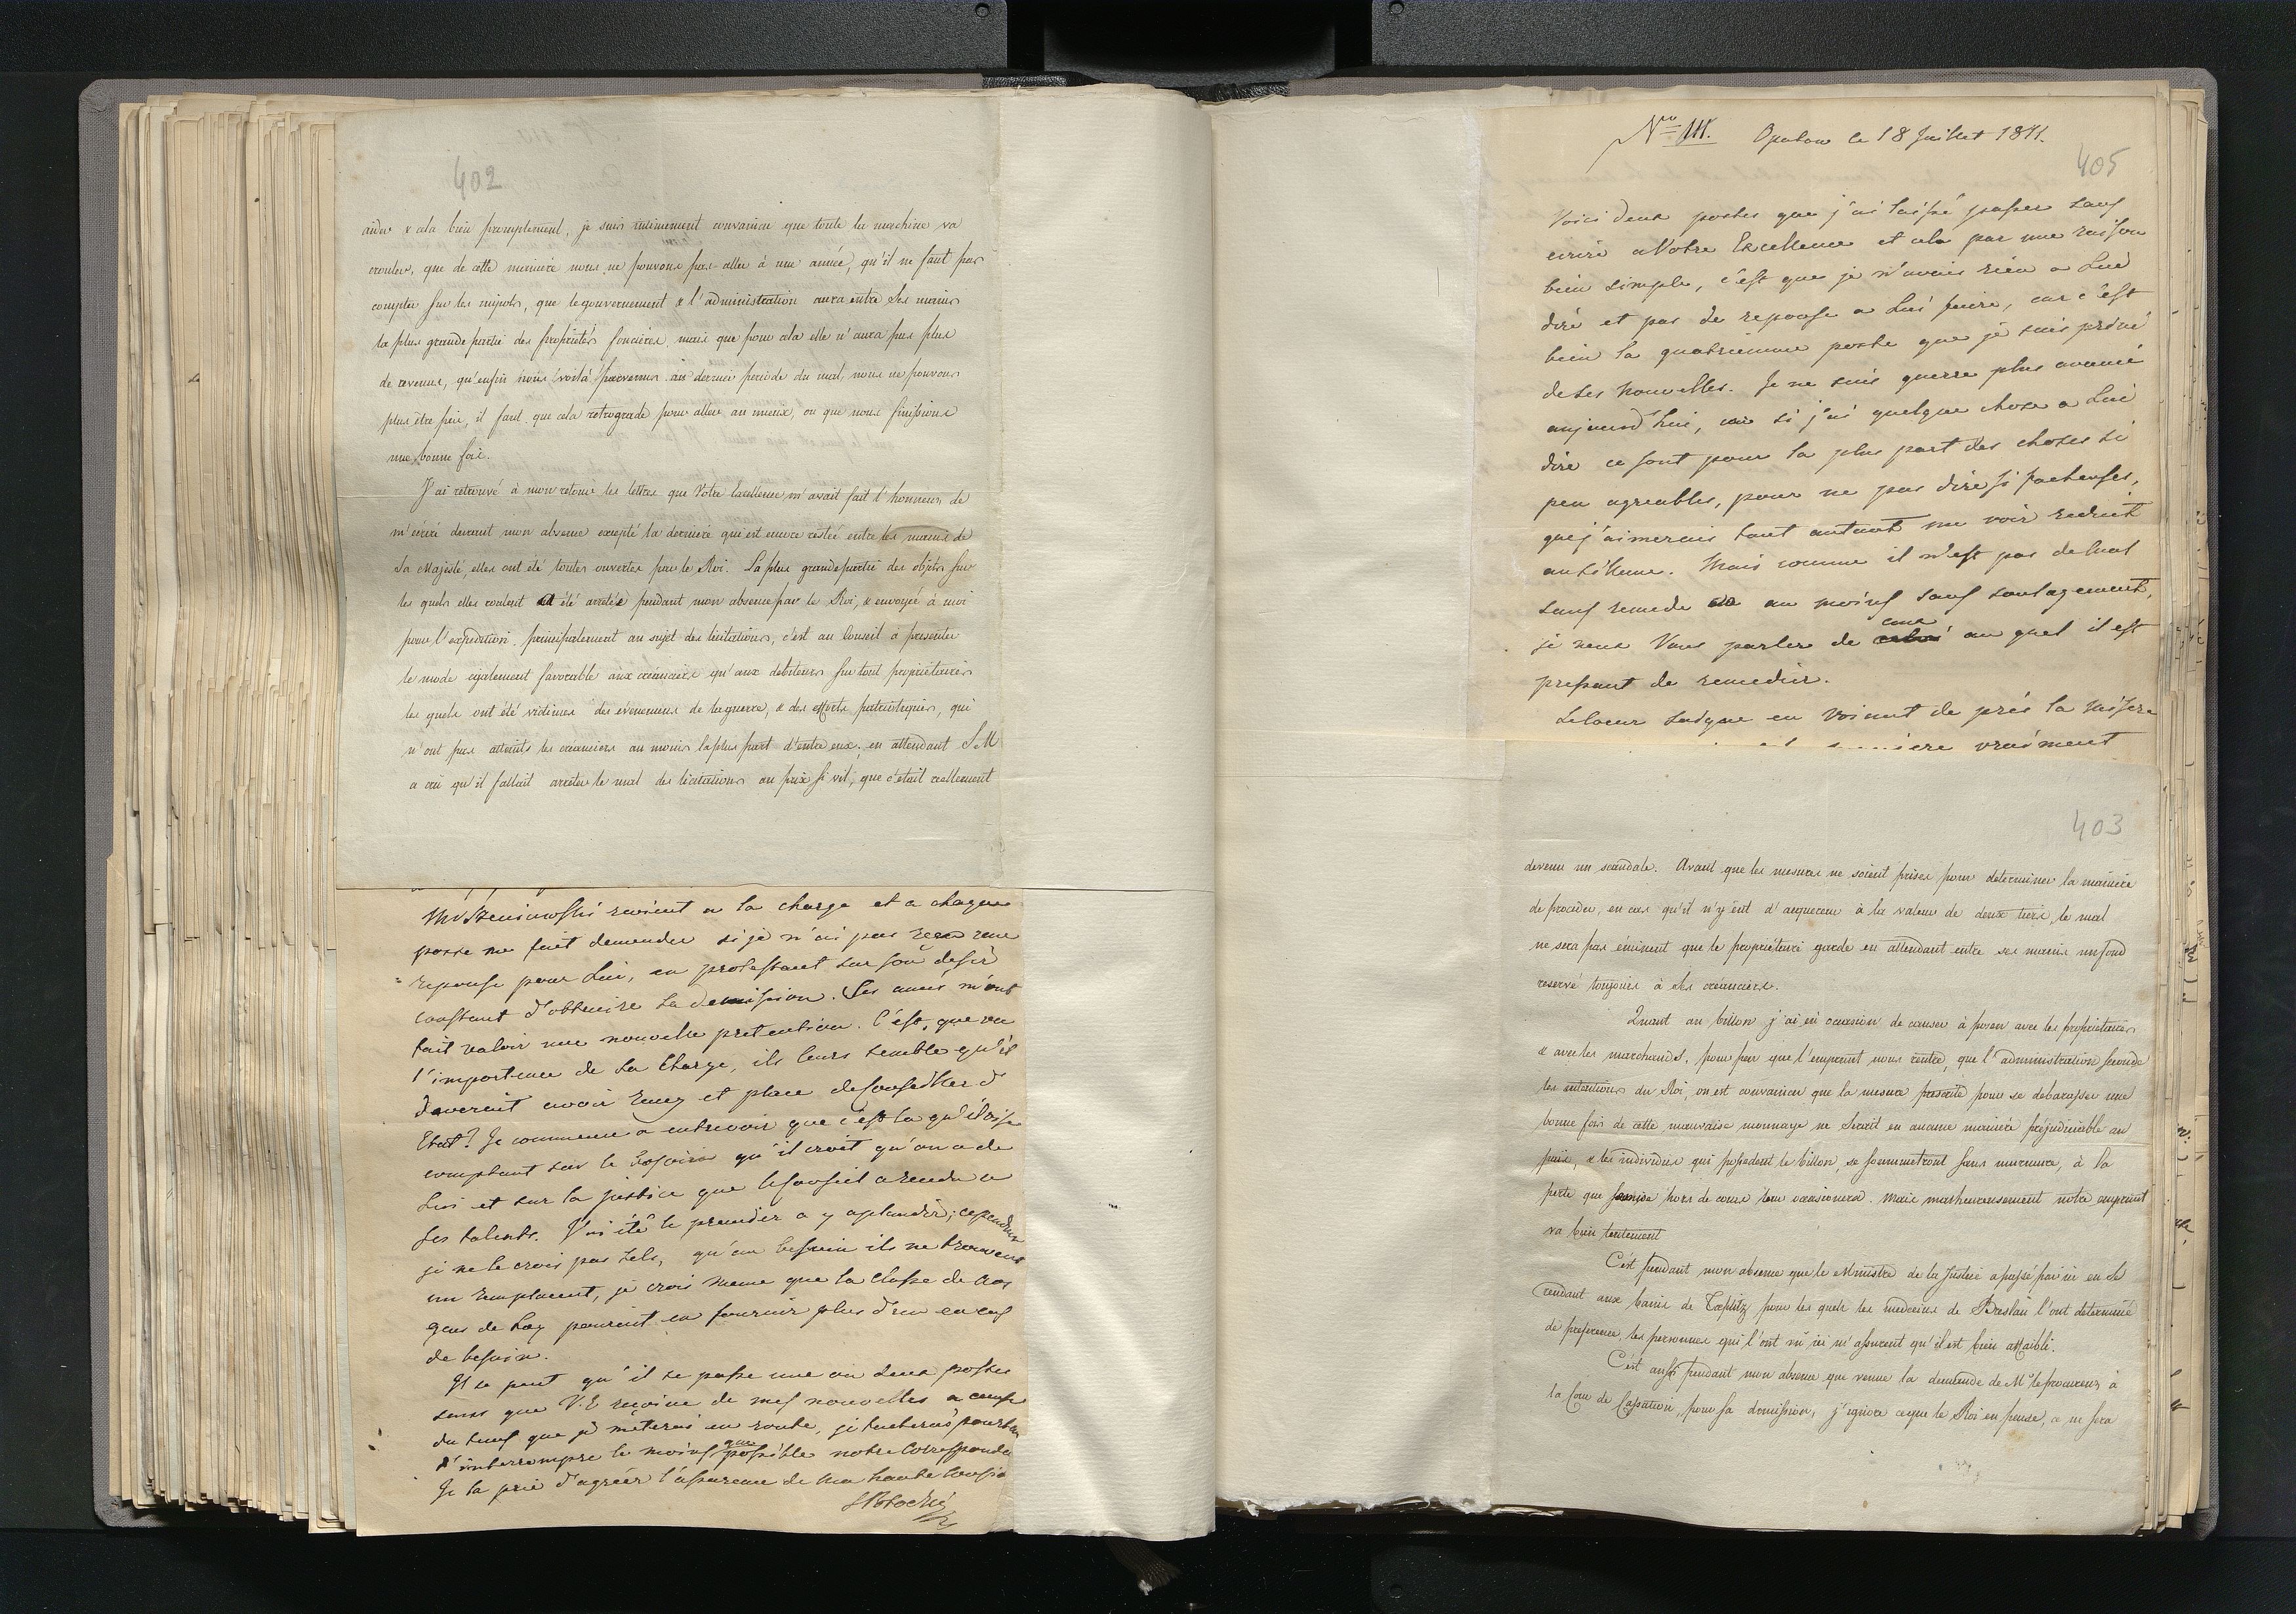 402
aider & cela bien promptement, je suis intimement convaincu que toute la machine va
crouler, que de cette maniere nous ne pouvons pas aller à une année, qu'il ne faut pas
compter sur les impots, que le gouvernement & l'administration aura entre ses mains
la plus grande partie des proprietés foncières, mais que pour cela elle n'aura pas plus
de revenus, qu'enfin nous voilà parvenus au dernier periode du mal, nous ne pouvons
plus être pire, il faut que cela retrograde pour aller au mieux, ou que nous finissions
une bonne fois.
J'ai retrouvé à mon retour les lettres que Votre Excellence m'avait fait l'honneur de
m'écrire durant mon absence excepté la derniere qui est encore restée entre les mains de
Sa Majesté, elles ont été toutes ouvertes par le Roi. La plus grande partie des objets sur
les quels elles roulent a été arretée pendant mon absence par le Roi, & envoyée à moi
pour l'expedition. principalement au sujet des licitations, c'est au Conseil à presenter
le mode egalement favorable aux creanciers qu'aux debiteurs sur tout proprietaires
les quels ont été victimes des evenemens de la guerre, & des efforts patriotiques, qui
n'ont pas atteints les creanciers au moins la plus part d'entre eux; en attendant S M
a crû qu'il fallait arreter le mal des licitations au prix si vil, que c'etait reellement
revient a la charge et a chaque
poste me fait demander si je n'ai pas recu une
reponse pour Lui, en protestant sur son desir
constant d'obtenire sa demission. Ses amis m'ont
fait valoir une nouvelle pretention. C'est, que vu
l'importence de sa Charge, ils leurs semble qu'il
devereit avoir rang et place de Conseiller d
Etat? Je commence a entrevoir que c'est la qu'il vise
comptant sur le besoin qu'il croit qu'on a de
Lui et sur la justice que le Conseil a rendu a
ses talents. J'ai été le premier a y aplaudir; cependant
je ne le crois pas tels, qu'au besoin ils ne trouvent
un remplacent, je crois meme que la classe de nos
gens de Loy pourrait en fournir plus d'un en cas
de besoin.
Il se peut qu'il se passe une ou deux postes
sens que V.E recoive de mes nouvelles a cause
du tems que je méterai en route, je tacherai pourtant
d'interrompre le moins que possible notre Corresponda
Je la prie d'agréer l'assurence de ma haute Consid
SPotocki
Nro 111. Opatow le 18 Juillet 1811.
405
Voici deux postes que j'ai laissé passer sans
ecrire a Votre Excellence et cela par une raison
bien simple, c'est que je n'avais rien a Lui
dire et pas de reponse a Lui faire, car c'est
bien la quatrieme poste que je suis privé
de ses nouvelles. Je ne suis guerre plus avancé
aujourd'hui, car si j'ai quelque chose a Lui
dire ce sont pour la plus part des choses si
peu agreables, pour ne pas dire si facheuses,
que j'aimerais tout autant me voir reduit
au silence. Mais comme il n'est pas de mal
sans remede ou au moins sans soulagement,
je veux Vous parler de ceux au quel il est
pressant de remedier.
Le Coeur saigne en voiant de près la misere
vraiment
403
devenu un scandale. Avant que les mesures ne soient prises pour determiner la maniere
de proceder, en cas qu'il n'y eut d'acquereur à la valeur de deux tiers, le mal
ne sera pas éminent que le proprietaire garde en attendant entre ses mains un fond
reservé toujours à ses creanciers.
Quant au billon j'ai eu occasion de causer à Posen avec les proprietaires
& avec les marchands, pour peu que l'emprunt nous rentre, que l'administration seconde
les intentions du Roi, on est convaincu que la mesure prescrite pour se debarasser une
bonne fois de cette mauvaise monnaye ne serait en aucune maniere préjudiciable au
païs, & les individus qui possedent le billon, se soummetront sans murmure, à la
perte que hors de cours leur occasionera. Mais malheureusement notre emprunt
va bien lentement
C'est pendant mon absence que le Ministre de la Justice a passé par ici en se
rendant aux bains de Toeplitz pour les quels les medecins de Breslau l'ont determiné
de preference, les personnes qui l'ont vu ici m'assurent qu'il est bien affaibli.
C'est aussi pendant mon absence que venue la demande de Mr le procureur à
la Cour de Cassation, pour sa demission, j'ignore ce que le Roi en pense, ce ne sera